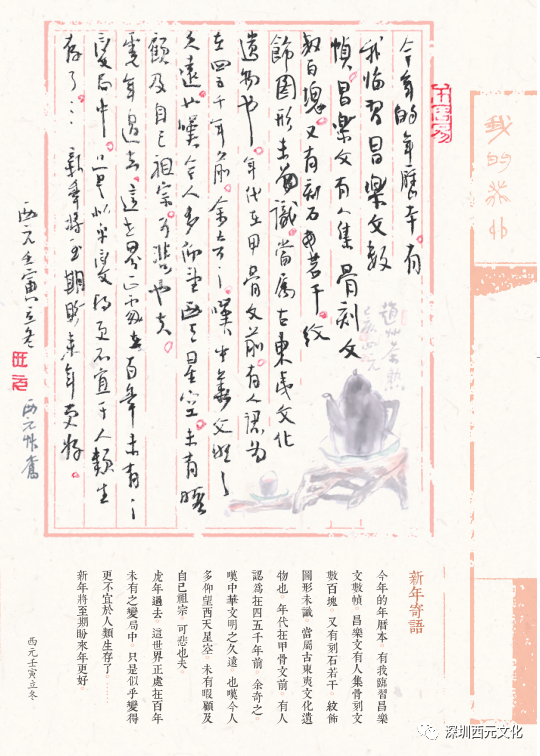 今年的年曆本。有
我临習昌樂文數
幀。昌樂文有人集骨刻文
數百塊。又有刻石若干。紋
飾圖形未識。當屬古東夷文化
遺物也。年代在甲骨文前。有人認为
在四五千年前。余奇之。嘆中華文明之
久遠。也嘆今人多仰望西天星空。未有暇
顧及自己祖宗。可悲也夫。
虎年過去。這世界正處在百年未有之
變局中。只是似乎變得更不宜于人類生
存了…新年將至期盼來年更好。
西元壬寅立冬
西元
我的
新年寄語
今年的年曆本。有我臨習昌樂
文數幀。昌樂文有人集骨刻文
數百塊。又有刻石若干。紋飾
圖形未識。當屬古東夷文化遺
物也。年代在甲骨文前。有人
認為在四五千年前。余奇之。
嘆中華文明之久遠。也嘆今人
多仰望西天星空。未有暇顧及
自己祖宗。可悲也夫。
虎年過去。這世界正處在百年
未有之變局中。只是似乎變得
更不宜於人類生存了……
新年將至期盼來年更好
西元壬寅立冬
深圳西元文化